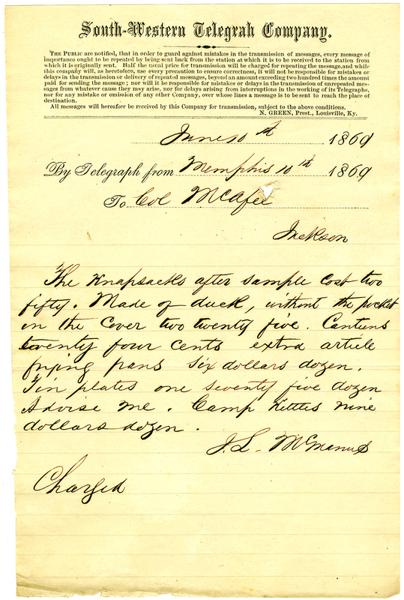 South-Western Telegrah Company.
THE PUBLIC are notified, that in order to guard against mistakes in the transmission of messages, every message of
importance ought to be repeated by being sent back from the station at which it is to be received to the station from
which it is originally sent. Half the usual price for transmission will be charged for repeating the message, and while
this company will, as heretofore, use every precaution to ensure correctness, it will not be responsible for mistakes or
delays in the transmission or delivery of repeated messages, beyond an amount exceeding two hundred times the amount
paid for sending the message; nor will it be responsible for mistakes or delays in the transmission of unrepeated mes-
sages from whatever cause they may arise, nor for delays arising from interruptions in the working of its Telegraphs,
nor for any mistake or omission of any other Company, over whose lines a message is to be sent to reach the place of
destination.
All messages will hereafter be received by this Company for transmission, subject to the above conditions.
N. GREEN, Prest., Louisville, Ky.
June 10th 1860
By Telegraph from Memphis 10th 1860
To Col McAfee
Jackson
The Knapsacks after sample cost two
fifty. Made of duck, without the pocket
in the cover two twenty five. Cantins
twenty four cents extra article
frying pans Six dollars dozen.
Tin plates one seventy five dozen
Advise me. Camp Kettles nine
dollars dozen.
J. L. McManus
Charged